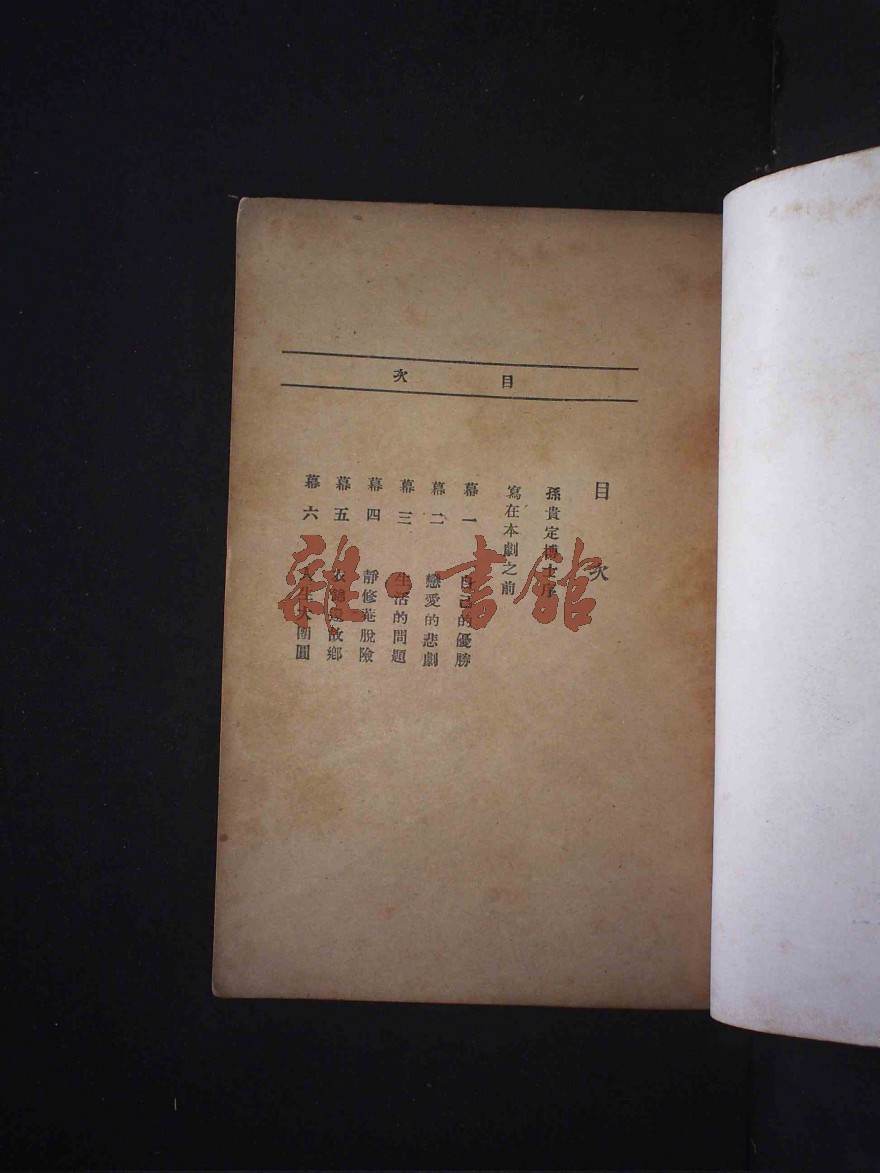 目次
目次
孫貴定博士序
寫在本劇之前
幕一 自己的優勝
幕二 戀愛的悲劇
幕三 生活的問題
幕四 靜修菴脫險
幕五 衣錦還故鄉
幕六 人生大團圓
雜·書館